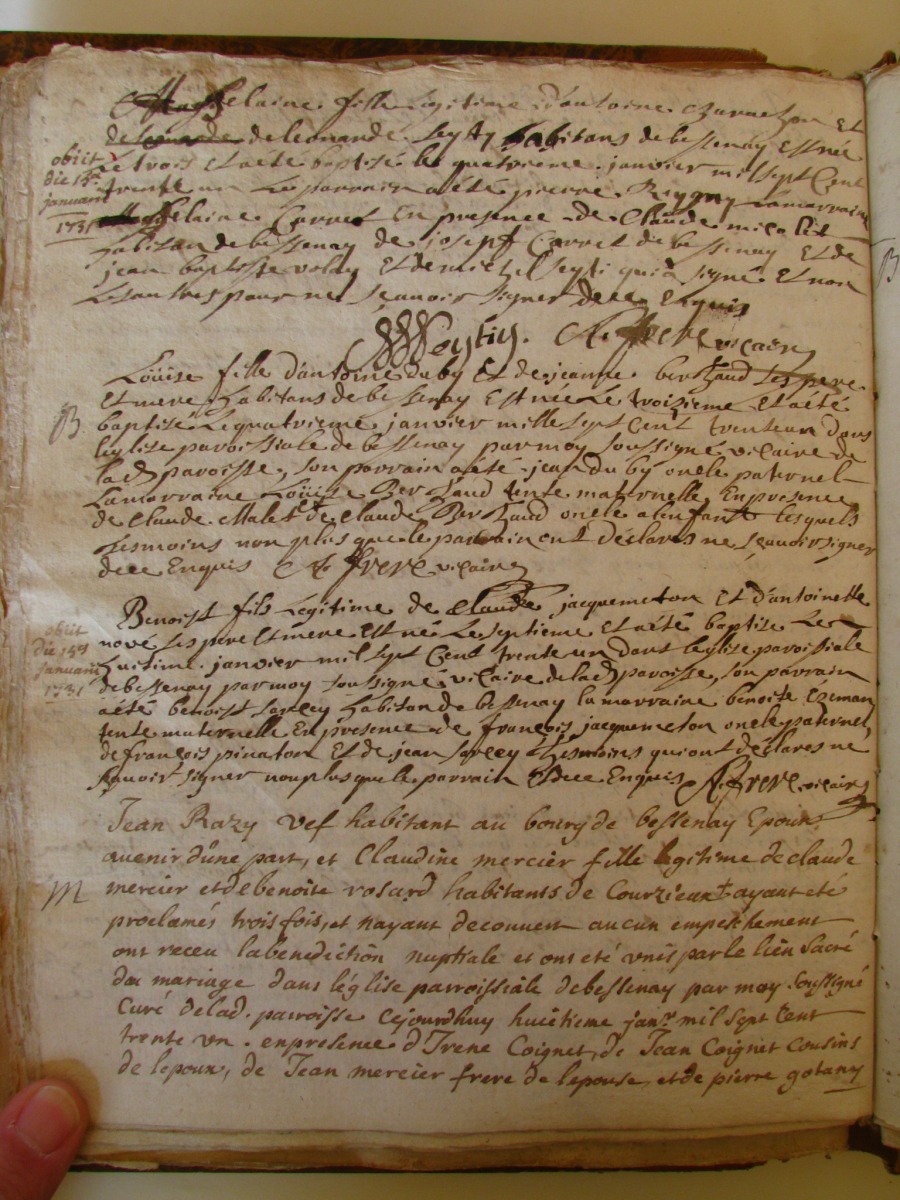 Magdelaine fille legitime d'antoine Et
de leonarde Seyty habitans de bessenay Est née
obiit
die 15a
januarii
1731
Le trois Et a eté baptisé le quatrieme janvier mil sept Cent
trente un Le parrain a eté pierre La marraine
Magdelaine Carret En presence de Claude
habitan de bessenay de joseph Carret de bessenay Et de
jean baptisse volay Et de michel seyti qui a signé Et non
Les autres pour ne sçauoir signer de ce Enquis
Seytiy. A. frere vicaire
B
Loüise fille d'antoine Duby Et de jeanne berthaud Ses pere
Et mere habitans de bessenay Est née Le troisieme Et a eté
baptisé Le quatrieme janvier mille sept Cent trente un dans
l'eglise paroissiale de bessenay par moy soussigné vicaire de
lad paroisse, son parrain a eté jean du by oncle paternel
La marraine Loüise Berthaud tente maternelle En presence
de Claude Malet de Claude Berthaud oncle a l'enfant Lesquels
tesmoins non plus que le parrain ont déclarés ne sçauoir signer
de ce Enquis A. frere vicaire
obiit
die 15a
januarii
1731
Benoist fils Legitime de Claude jacquemeton Et d'antoinette
nové Ses pere Et mere Est né Le septieme Et a eté baptise Le
huitime janvier mil sept Cent trente un dans l'eglise paroissiale
de bessenay par moy soussigné vicaire de lad paroisse, son parrain
a eté benoist Sarcey habitan de bessenay la marraine benoite
tente maternelle En presence de françois jacquemeton oncle paternel,
de françois pinaton Et de jean Sarcey tesmoins qui ont déclarés ne
sçauoir signer non plus que le parrain de ce Enquis A. frere vicaire
M
Jean Razy vef habitant au bourg de bessenay Epoux
auenir d'une part, et Claudine mercier fille legitime de claude
mercier et de benoite rosard habitants de Courzieux ayant eté
proclamés trois fois, et nayant decouvert aucun empeschement
ont receu la benediction nuptiale et ont eté unis par le lien sacré
du mariage dans l'église parroissiale de bessenay par moy soussigné
Curé de lad. parroisse cejourdhuy huitieme janr. mil sept Cent
trente un. en presence d'Irené Coignet, de Jean Coignet Cousins
de lepoux, de Jean mercier frere de lepouse, et de pierre gotany